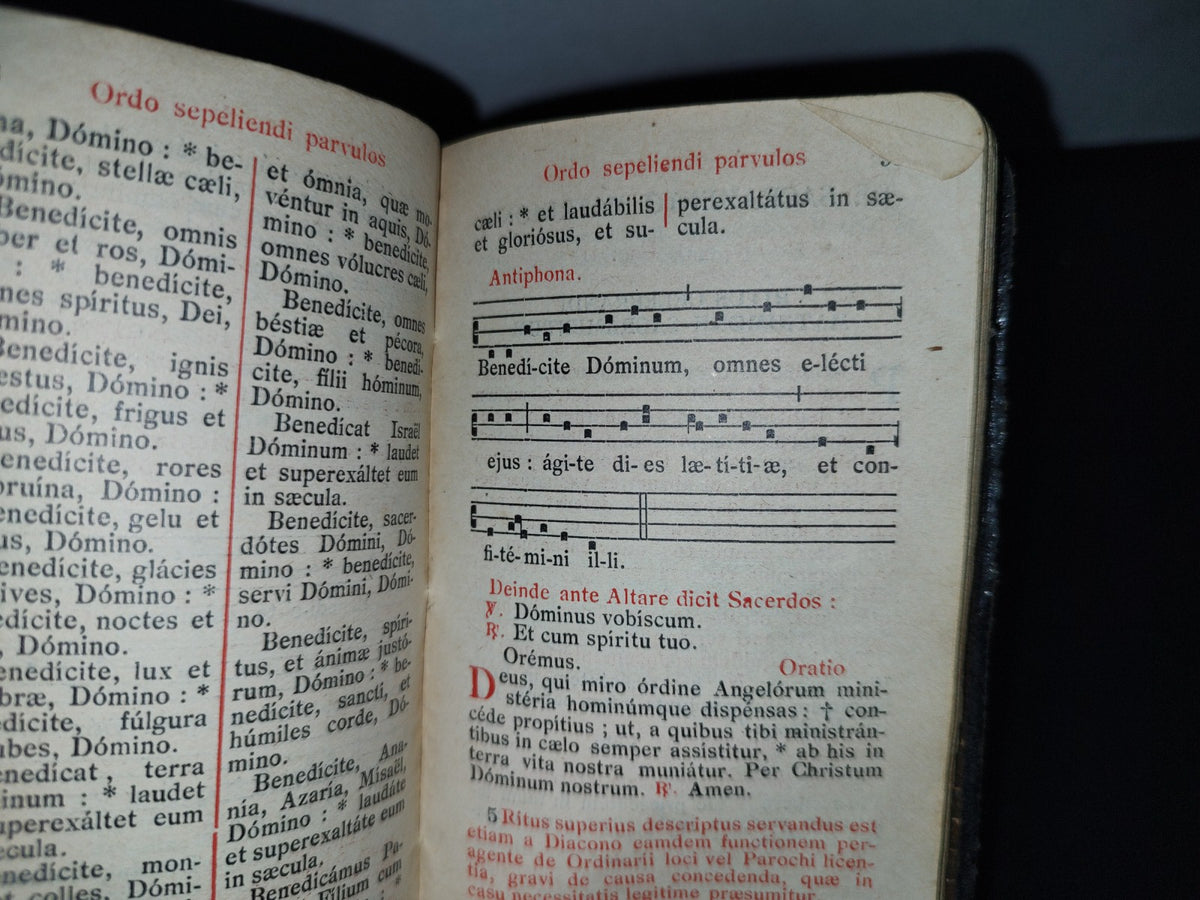 Ordo sepeliendi parvulos
Dómino : * be-
stellæ cæli,
Benedícite, omnis
et ros, Dómi-
: * benedícite,
spíritus, Dei,
ignis
Dómino : *
frigus et
Dómino.
rores
Dómino :
gelu et
Dómino.
glácies
Dómino : *
noctes et
Dómino.
lux et
Dómino : *
fúlgura
Dómino.
terra
: * laudet
eum
mon-
colles, Dómi-
et ómnia, quæ mo-
véntur in aquis, Dó-
mino : * benedícite,
omnes vólucres cæli,
Dómino.
Benedícite, omnes
béstiæ et pécora,
Dómino : * benedí-
cite, fílii hóminum,
Dómino.
Benedícat Israël
Dóminum : * laudet
et superexáltet eum
in sæcula.
Benedícite, sacer-
dótes Dómini, Dó-
mino : * benedícite,
servi Dómini, Dómi-
no.
Benedícite, spíri-
tus, et ánimæ justó-
rum, Dómino : * be-
nedícite, sancti, et
húmiles corde, Dó-
mino.
Benedícite, Ana-
nía, Azaría, Mísaël,
Dómino : * laudáte
et superexaltáte eum
in sæcula.
Benedicámus Pa-
Fílium cum
Ordo sepeliendi parvulos
cæli : * et laudábilis
et gloriósus, et su-
perexaltátus in sæ-
cula.
Antiphona.
Benedí-cite Dóminum, omnes e-lécti
ejus : ági-te di-es læ-tí-ti-æ, et con-
fi-té-mi-ni il-li.
Deinde ante Altare dicit Sacerdos :
℣. Dóminus vobíscum.
℟. Et cum spíritu tuo.
Orémus. Oratio
Deus, qui miro órdine Angelórum mini-
stéria hominúmque dispénsas : † con-
céde propítius ; ut, a quibus tibi ministrán-
tibus in cælo semper assístitur, * ab his in
terra vita nostra muniátur. Per Christum
Dóminum nostrum. ℟. Amen.
5 Ritus superius descriptus servandus est
etiam a Diacono eamdem functionem per-
agente de Ordinarii loci vel Parochi licen-
tia, gravi de causa concedenda, quæ in
casu necessitatis legitime præsumitur.